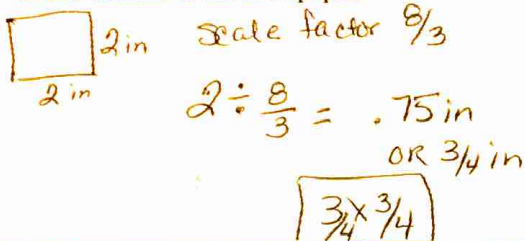 2 in scale factor 8/3
2 in
2 ÷ 8/3 = .75 in
OR 3/4 in
3/4 x 3/4